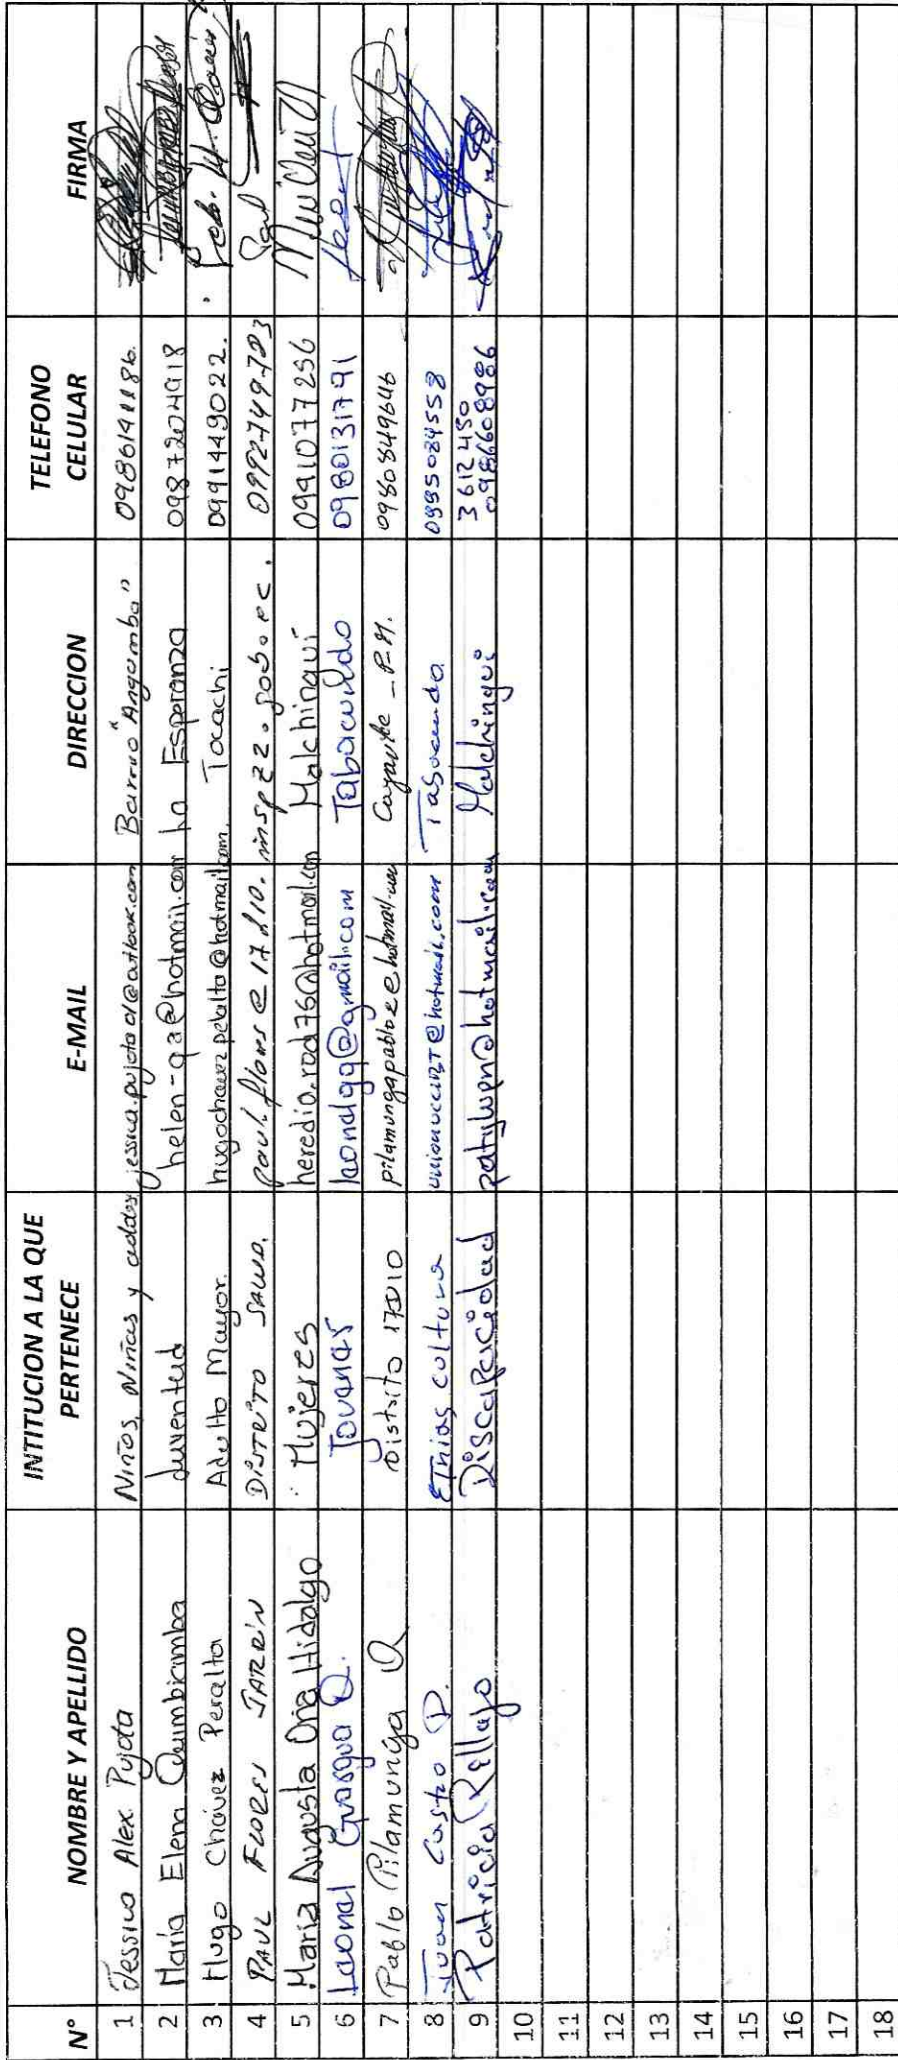 N° NOMBRE Y APELLIDO INTITUCION A LA QUE PERTENECE E-MAIL DIRECCION TELEFONO CELULAR FIRMA
1 Jessica Alex Pujota Niños, Niñas y jessica.pujota @outlook.com Barrio "Angumba" 0986141186.
2 María Elena Quimbiamba Juventud helen-qa@hotmail.com La Esperanza 0987204918
3 Hugo Chávez Peralta Adulto Mayor. hugochavezpelalto@hotmail.com. Tocachi 0991449022.
4 PAUL FLORES JARRÍN DISTRITO SALUD. paul.flores@17d10.mspz2.gob.ec. 0992749783
5 Maria Augusta Oña Hidalgo Mujeres heredia.rod76@hotmail.com Malchinguí 0991077256
6 Leonel Guasgua Q. leonelgq@gmail.com Tabacundo 0980131791
7 Pablo Pilamunga Q Distrito 17D10 pilamungapablo@hotmail.com Cayambe - P.M. 0980849646
8 Juan Castro P. Etnias cultura Tabacundo 0985084558
9 Patricia Pillajo Discapacidad patylupn@hotmail.com Malchinguí 3612450
0986608986
10
11
12
13
14
15
16
17
18